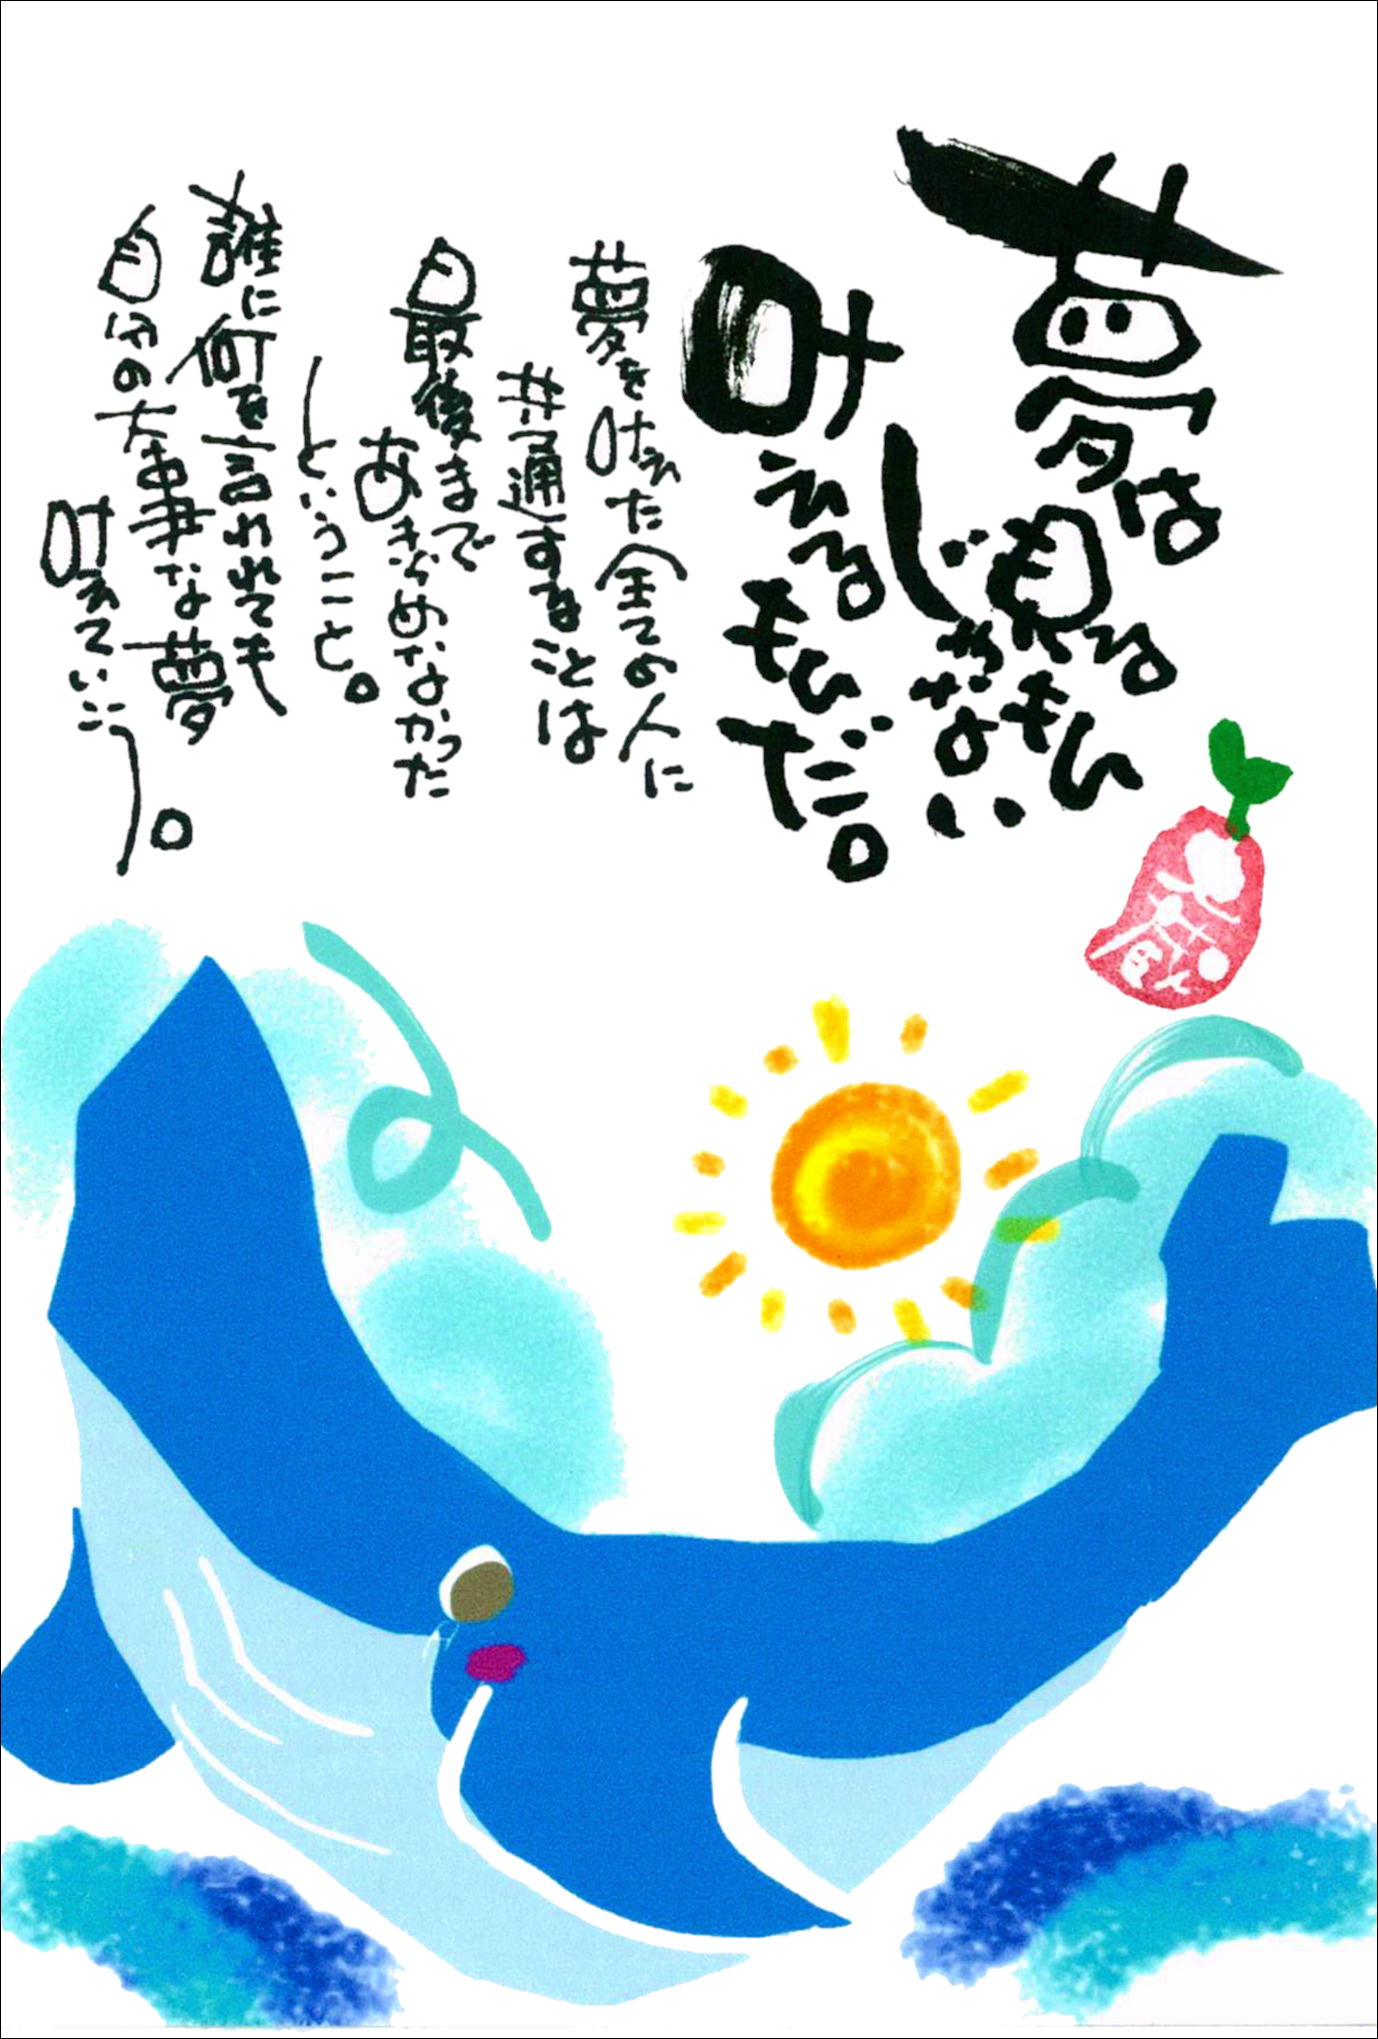 夢は
見るもん
じゃない
叶える
もん
だ。
夢を叶えた全ての人に
共通することは
最後まで
あきらめなかった
ということ。
誰に何を言われても
自分の大事な夢
叶えていこう。